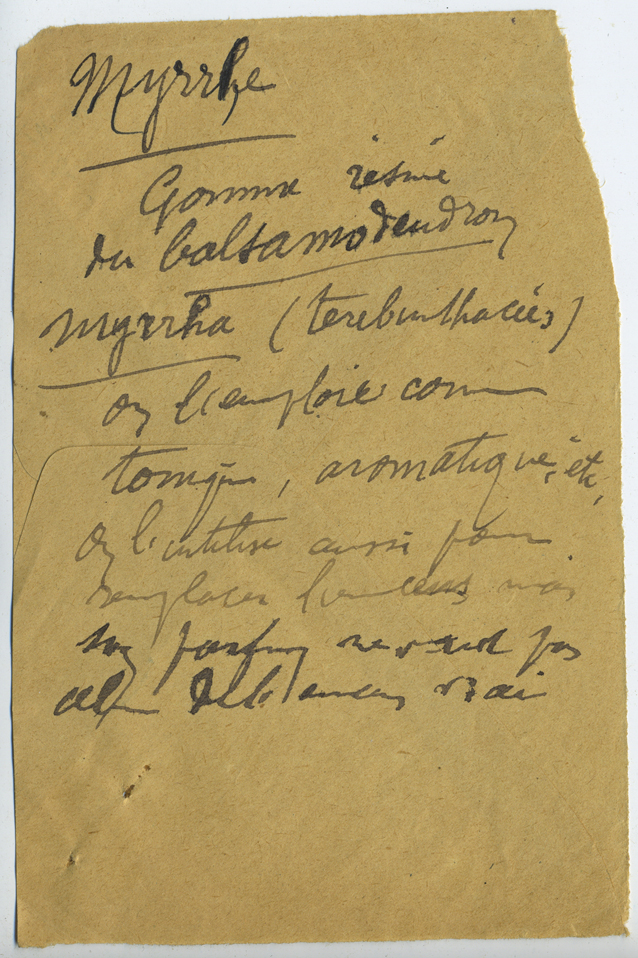 Myrrhe
Gomme résine
du balsamodendron
myrrha (terebinthacées)
on l'emploie comme
tonique, aromatique, etc,
on l'utilise aussi pour
remplacer l'encens mais
son parfum ne vaut pas
celui de l'encens vrai